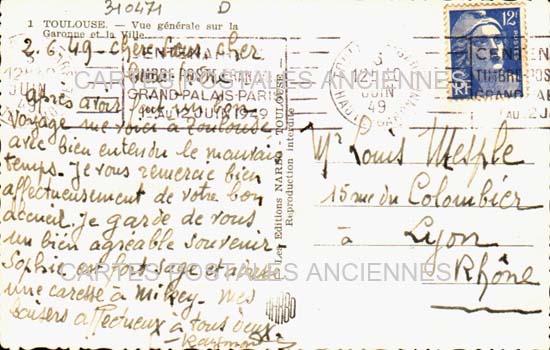 310471 D
1 TOULOUSE. — Vue générale sur la
Garonne et la Ville.
2.6.49 - Chère Lour, cher
après avoir fait un bon
voyage me voici à Toulouse
avec bien entendu le mauvais
temps. Je vous remercie bien
affectueusement de votre bon
accueil. Je garde de vous
un bien agréable souvenir
Sophie est fort sage et a
une caresse à Mikey. Mes
baisers affectueux à tous deux
Raymonde
Les Editions NARBO - TOULOUSE -
Reproduction interdite
NARBO
CENTENAIRE
TIMBRE-POSTE FRANCAIS
GRAND-PALAIS-PARIS
1 AU 12 JUIN 1949
12
JUIN
49
3
JUIN
49
HAUTE GARONNE
CENTEN
TIMBRE-POST
GRAND-PALA
AU 12 JUI
12F
RF
POSTES
Mr Louis Mesple
15 rue du Colombier
à Lyon
Rhône
CARTES POSTALES ANCIENNES
CARTES POSTALES ANCIENNES